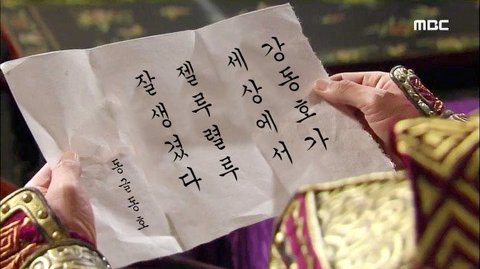 MBC
강동호가
세상에서
젤루렬루
잘생겼다
동글동호